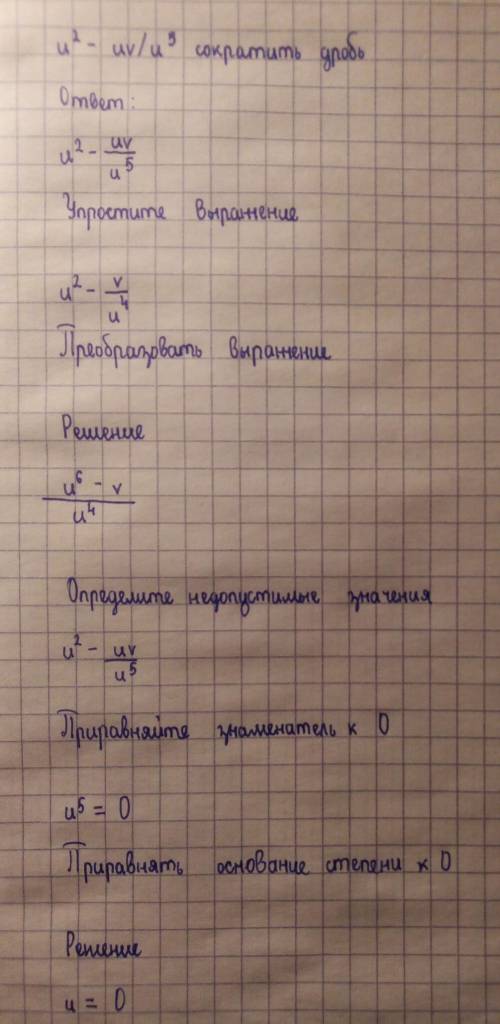 u² - uv/u⁵ сократить дробь
Ответ:
u² - uv/u⁵
Упростите выражение
u² - v/u⁴
Преобразовать выражение
Решение
u⁶ - v/u⁴
Определите недопустимые значения
u² - uv/u⁵
Приравняйте знаменатель к 0
u⁵ = 0
Приравнять основание степени к 0
Решение
u = 0